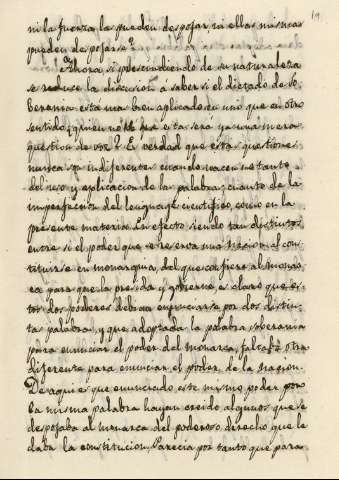 19
ni la fuerza las pueden despojar, ni ellas mismas
pueden despojarse.
Ahora si prescindiendo de su naturaleza
se reduce la discusion á saber si el dictado de So-
berania esta mas bien aplicado en uno que en otro
sentido, quien no ve que esta será ya una mera
question de voz? Es verdad que estas questiones
nunca son indiferentes cuando nacen no tanto
del uso y aplicacion de las palabras, cuanto de la
imperfeccion del lenguage cientifico, como en la
presente materia. En efecto siendo tan distintos
entre si el poder que se reserva una nacion al cons-
tituirse en monarquia, del que confiere al monar-
ca para que la presida y gobierne, es claro que es-
tos dos poderes debian enunciarse por dos distin-
tas palabras, y que adoptada la palabra soberania
para enunciar el poder del monarca, faltaba otra
diferente para enunciar el poder de la nacion.
De aqui es que enunciado este mismo poder por
la misma palabra hayan creido algunos que se
despojaba al monarca del poderoso derecho que le
daba la constitucion. Parecia por tanto que para